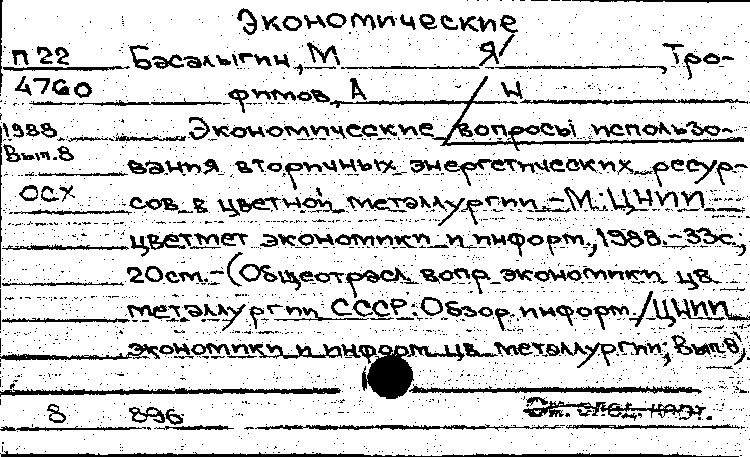 Экономические
П 22 Басалыгин, М Я, Тро-
4760 фимов, А И
1988 Экономические вопросы использо-
Вып.8 вания вторичных энергетических ресур-
ОСХ сов в цветной металлургии.-М.:ЦНИИ
цветмет экономики и информ., 1988.-33с.;
20см.-(Общеотрасл. вопр экономики цв
металлургии СССР: Обзор. информ. / ЦНИИ
экономики и информ цв металлургии; Вып.8)
8 896 См. след. карт.